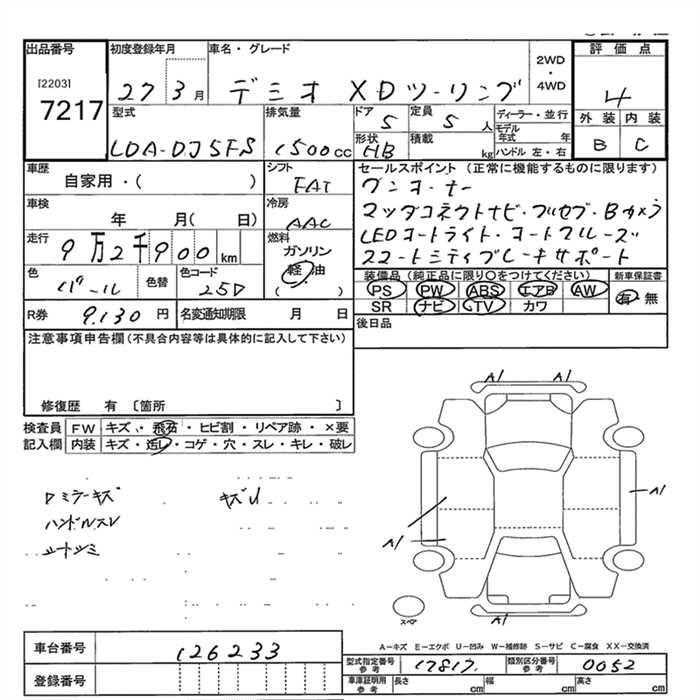 出品番号
[2203]
7217
初度登録年月
27 3月
車名・グレード
デミオ XDツーリング
2WD
・
4WD
評価点
4
外装 内装
B C
型式
LDA-DJ5FS
排気量
1500cc
ドア
5
定員
5人
形状
HB
積載
kg
ディーラー・並行
モデル
年式 年
ハンドル 左・右
車歴
自家用・( )
シフト
FAT
車検
年 月( 日)
冷房
AAC
走行
9万2千900km
燃料
ガソリン
軽・油
( )
色
パール
色替
色コード
25D
R券
9,130円
名変通知期限 月 日
セールスポイント(正常に機能するものに限ります)
ワンオーナー
マツダコネクトナビ・フルセグ・Bカメラ
LEDオートライト・オートクルーズ
スマートシティブレーキサポート
装備品(純正品に限り○をつけてください)
PS PW ABS エアB AW
SR ナビ TV カワ
新車保証書
有・無
後日品
注意事項申告欄(不具合内容等は具体的に記入して下さい)
修復歴 有 〔箇所 〕
検査員
記入欄
FW キズ・飛石・ヒビ割・リペア跡・×要
内装 キズ・汚レ・コゲ・穴・スレ・キレ・破レ
ロミラーキズ キズU
ハンドルスレ
シートシミ
A1 A1
A1
A1
A1
A1 A1
スペア
A-キズ E-エクボ U-凹み W-補修跡 S-サビ C-腐食 XX-交換済
車台番号
126233
登録番号
型式指定番号
参考
17817
類別区分番号
参考
0052
車庫証明用
参考
長さ cm
幅 cm
高さ cm